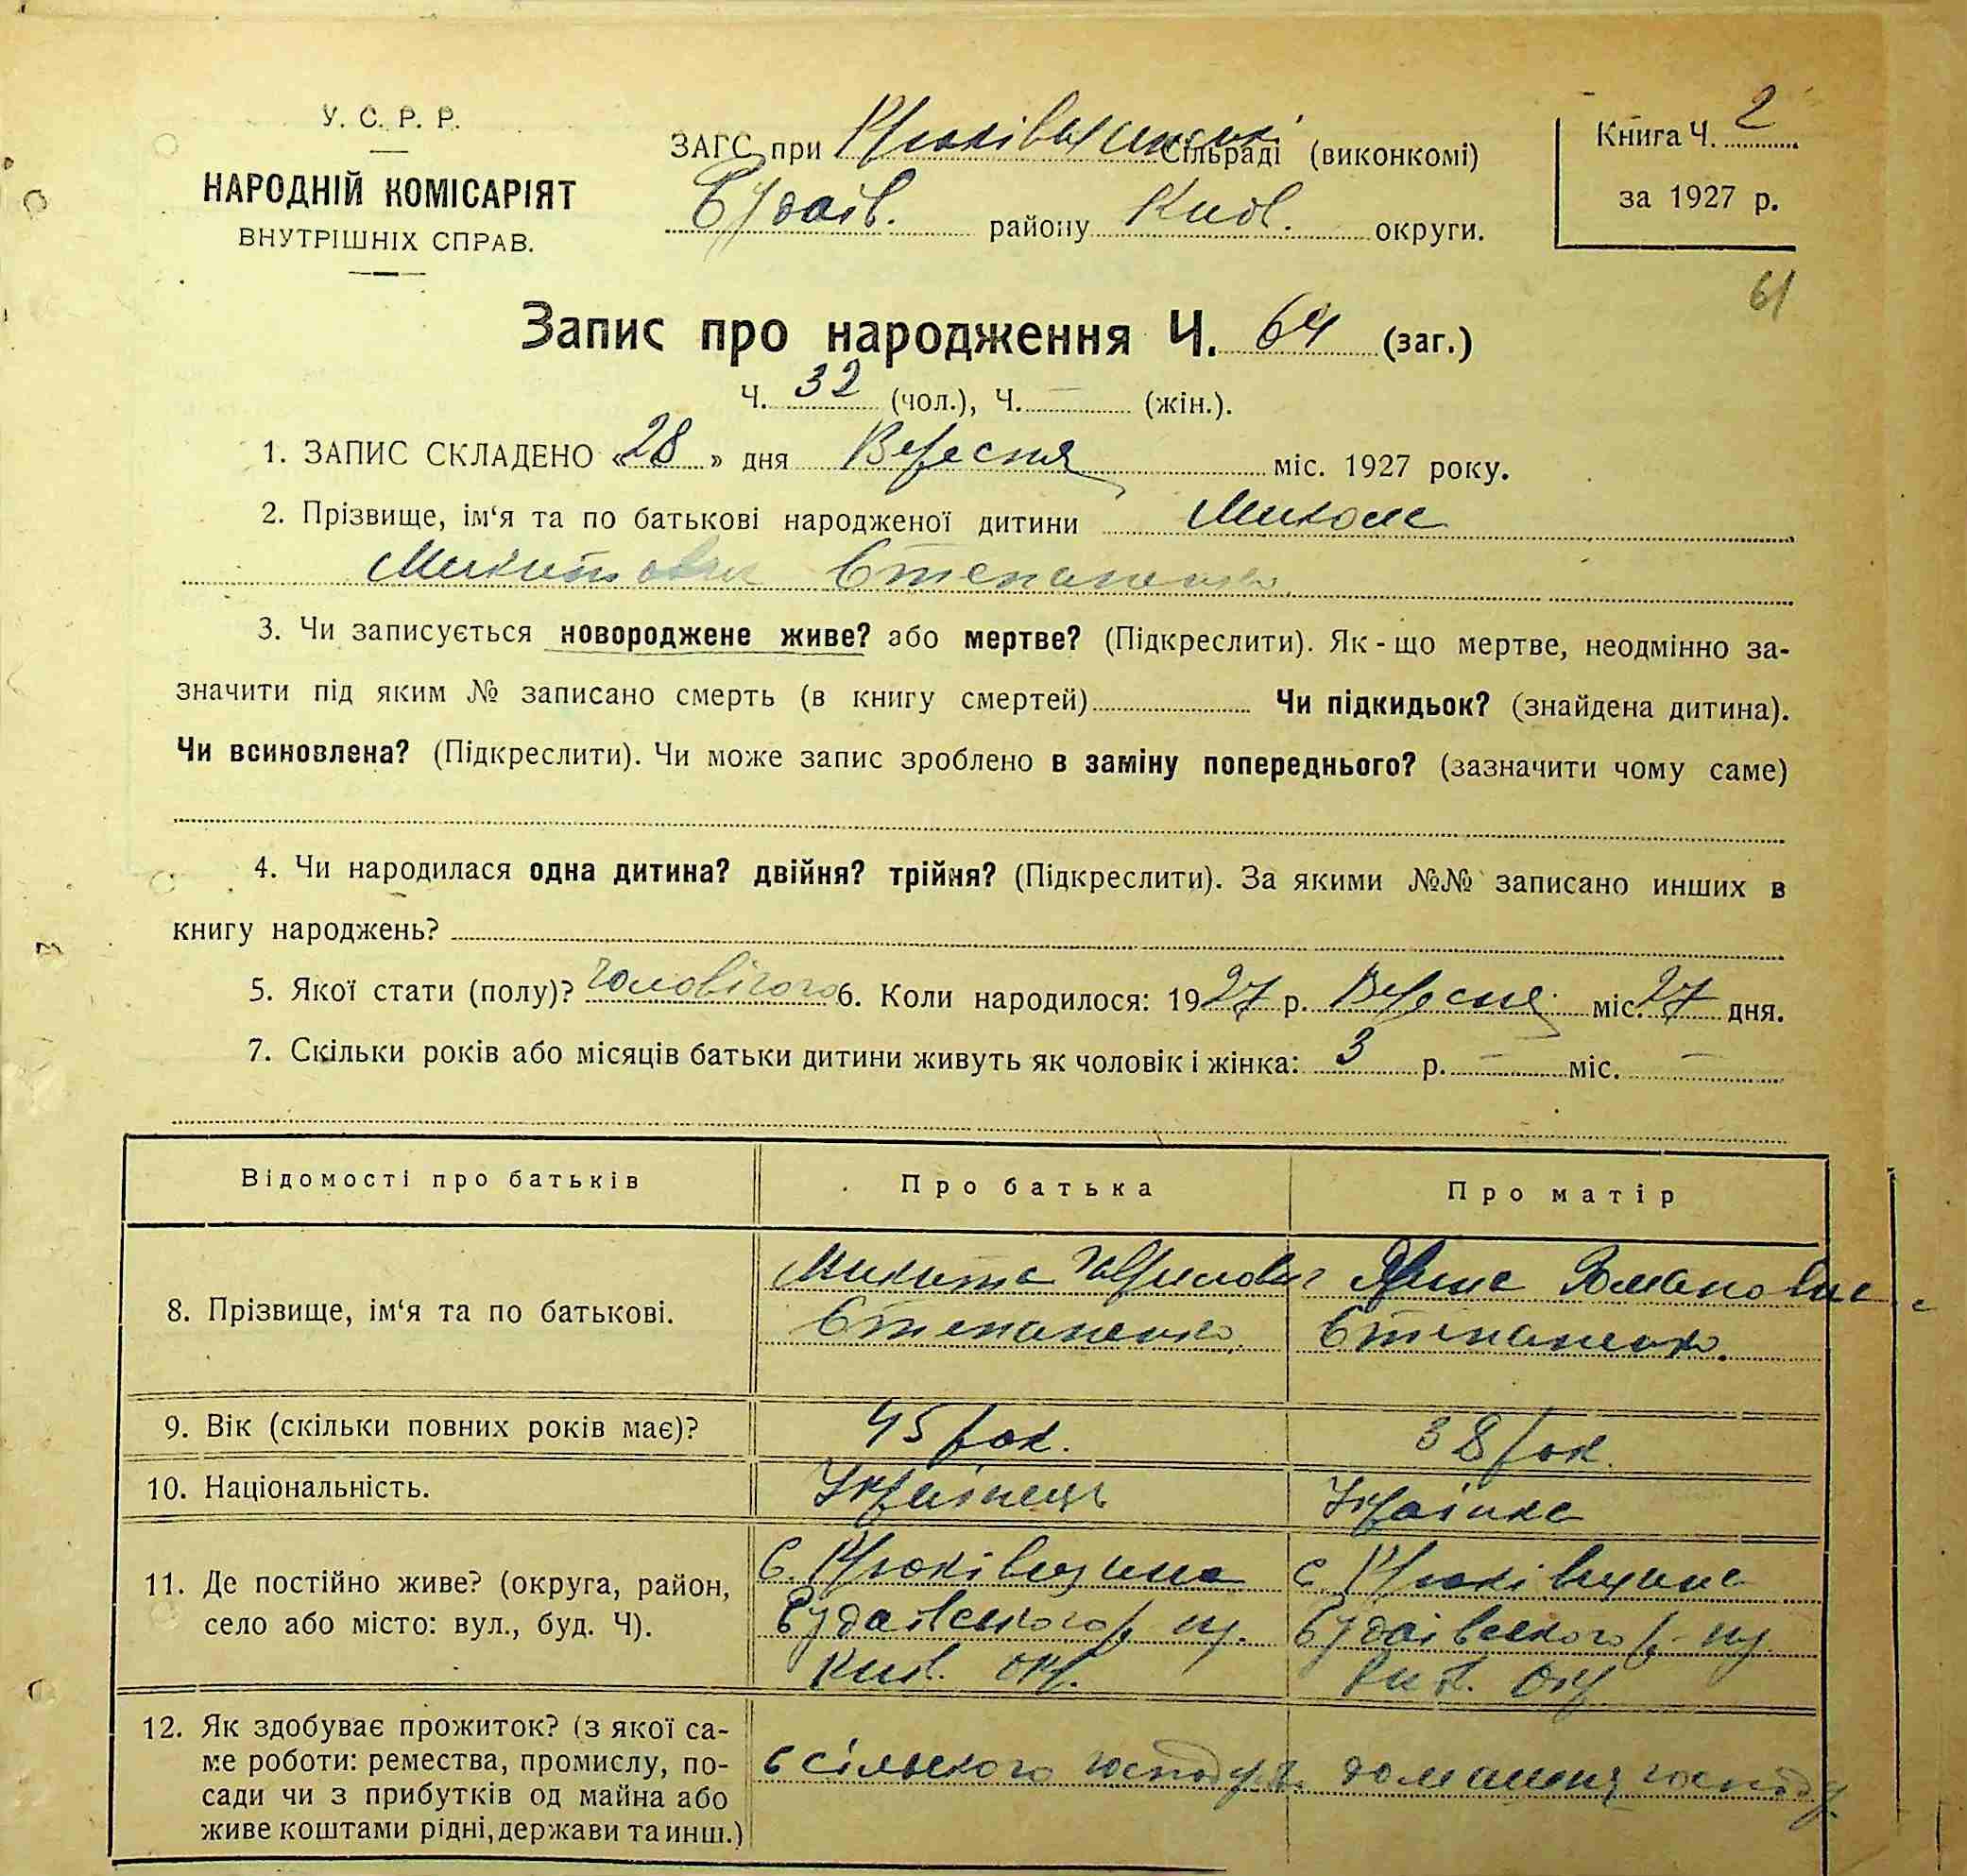 У. С. Р. Р.
НАРОДНІЙ КОМІСАРІЯТ
ВНУТРІШНІХ СПРАВ.
ЗАГС при Крюківщинські Сільраді (виконкомі)
Будаїв. району Київ. округи.
Книга Ч. 2
за 1927 р.
61
Запис про народження Ч. 64 (заг.)
Ч. 32 (чол.), Ч. — (жін.).
1. ЗАПИС СКЛАДЕНО «28» дня Вересня міс. 1927 року.
2. Прізвище, ім‘я та по батькові народженої дитини Микола
Микитович Степаненко
3. Чи записується новороджене живе? або мертве? (Підкреслити). Як-що мертве, неодмінно за-
значити під яким № записано смерть (в книгу смертей) Чи підкидьок? (знайдена дитина).
Чи всиновлена? (Підкреслити). Чи може запис зроблено в заміну попереднього? (зазначити чому саме)
4. Чи народилася одна дитина? двійня? трійня? (Підкреслити). За якими №№ записано инших в
книгу народжень?
5. Якої стати (полу)? чоловічого 6. Коли народилося: 1927 р. Вересня міс. 27 дня.
7. Скільки років або місяців батьки дитини живуть як чоловік і жінка: 3 р. — міс. —
Відомості про батьків Про батька Про матір
8. Прізвище, ім‘я та по батькові. Микита Романовна
Степаненко Степаненко.
9. Вік (скільки повних років має)? 45 рок. 38 рок.
10. Національність. Українець Українка
11. Де постійно живе? (округа, район,
село або місто: вул., буд. Ч).
с. Крюківщина с. Крюківщина
Будаївського р-ну. Будаївського р-ну
Київ. окр. Київ. Окр
12. Як здобуває прожиток? (з якої са-
ме роботи: ремества, промислу, по-
сади чи з прибутків од майна або
живе коштами рідні, держави та инш.)
з сільського господар. домашня господ